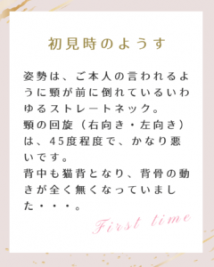 初見時のようす
姿勢は、ご本人の言われるよ
うに頸が前に倒れているいわ
ゆるストレートネック。
頸の回旋（右向き・左向き）
は、45度程度で、かなり悪
いです。
背中も猫背となり、背骨の動
きが全く無くなっていまし
た・・・。
First time